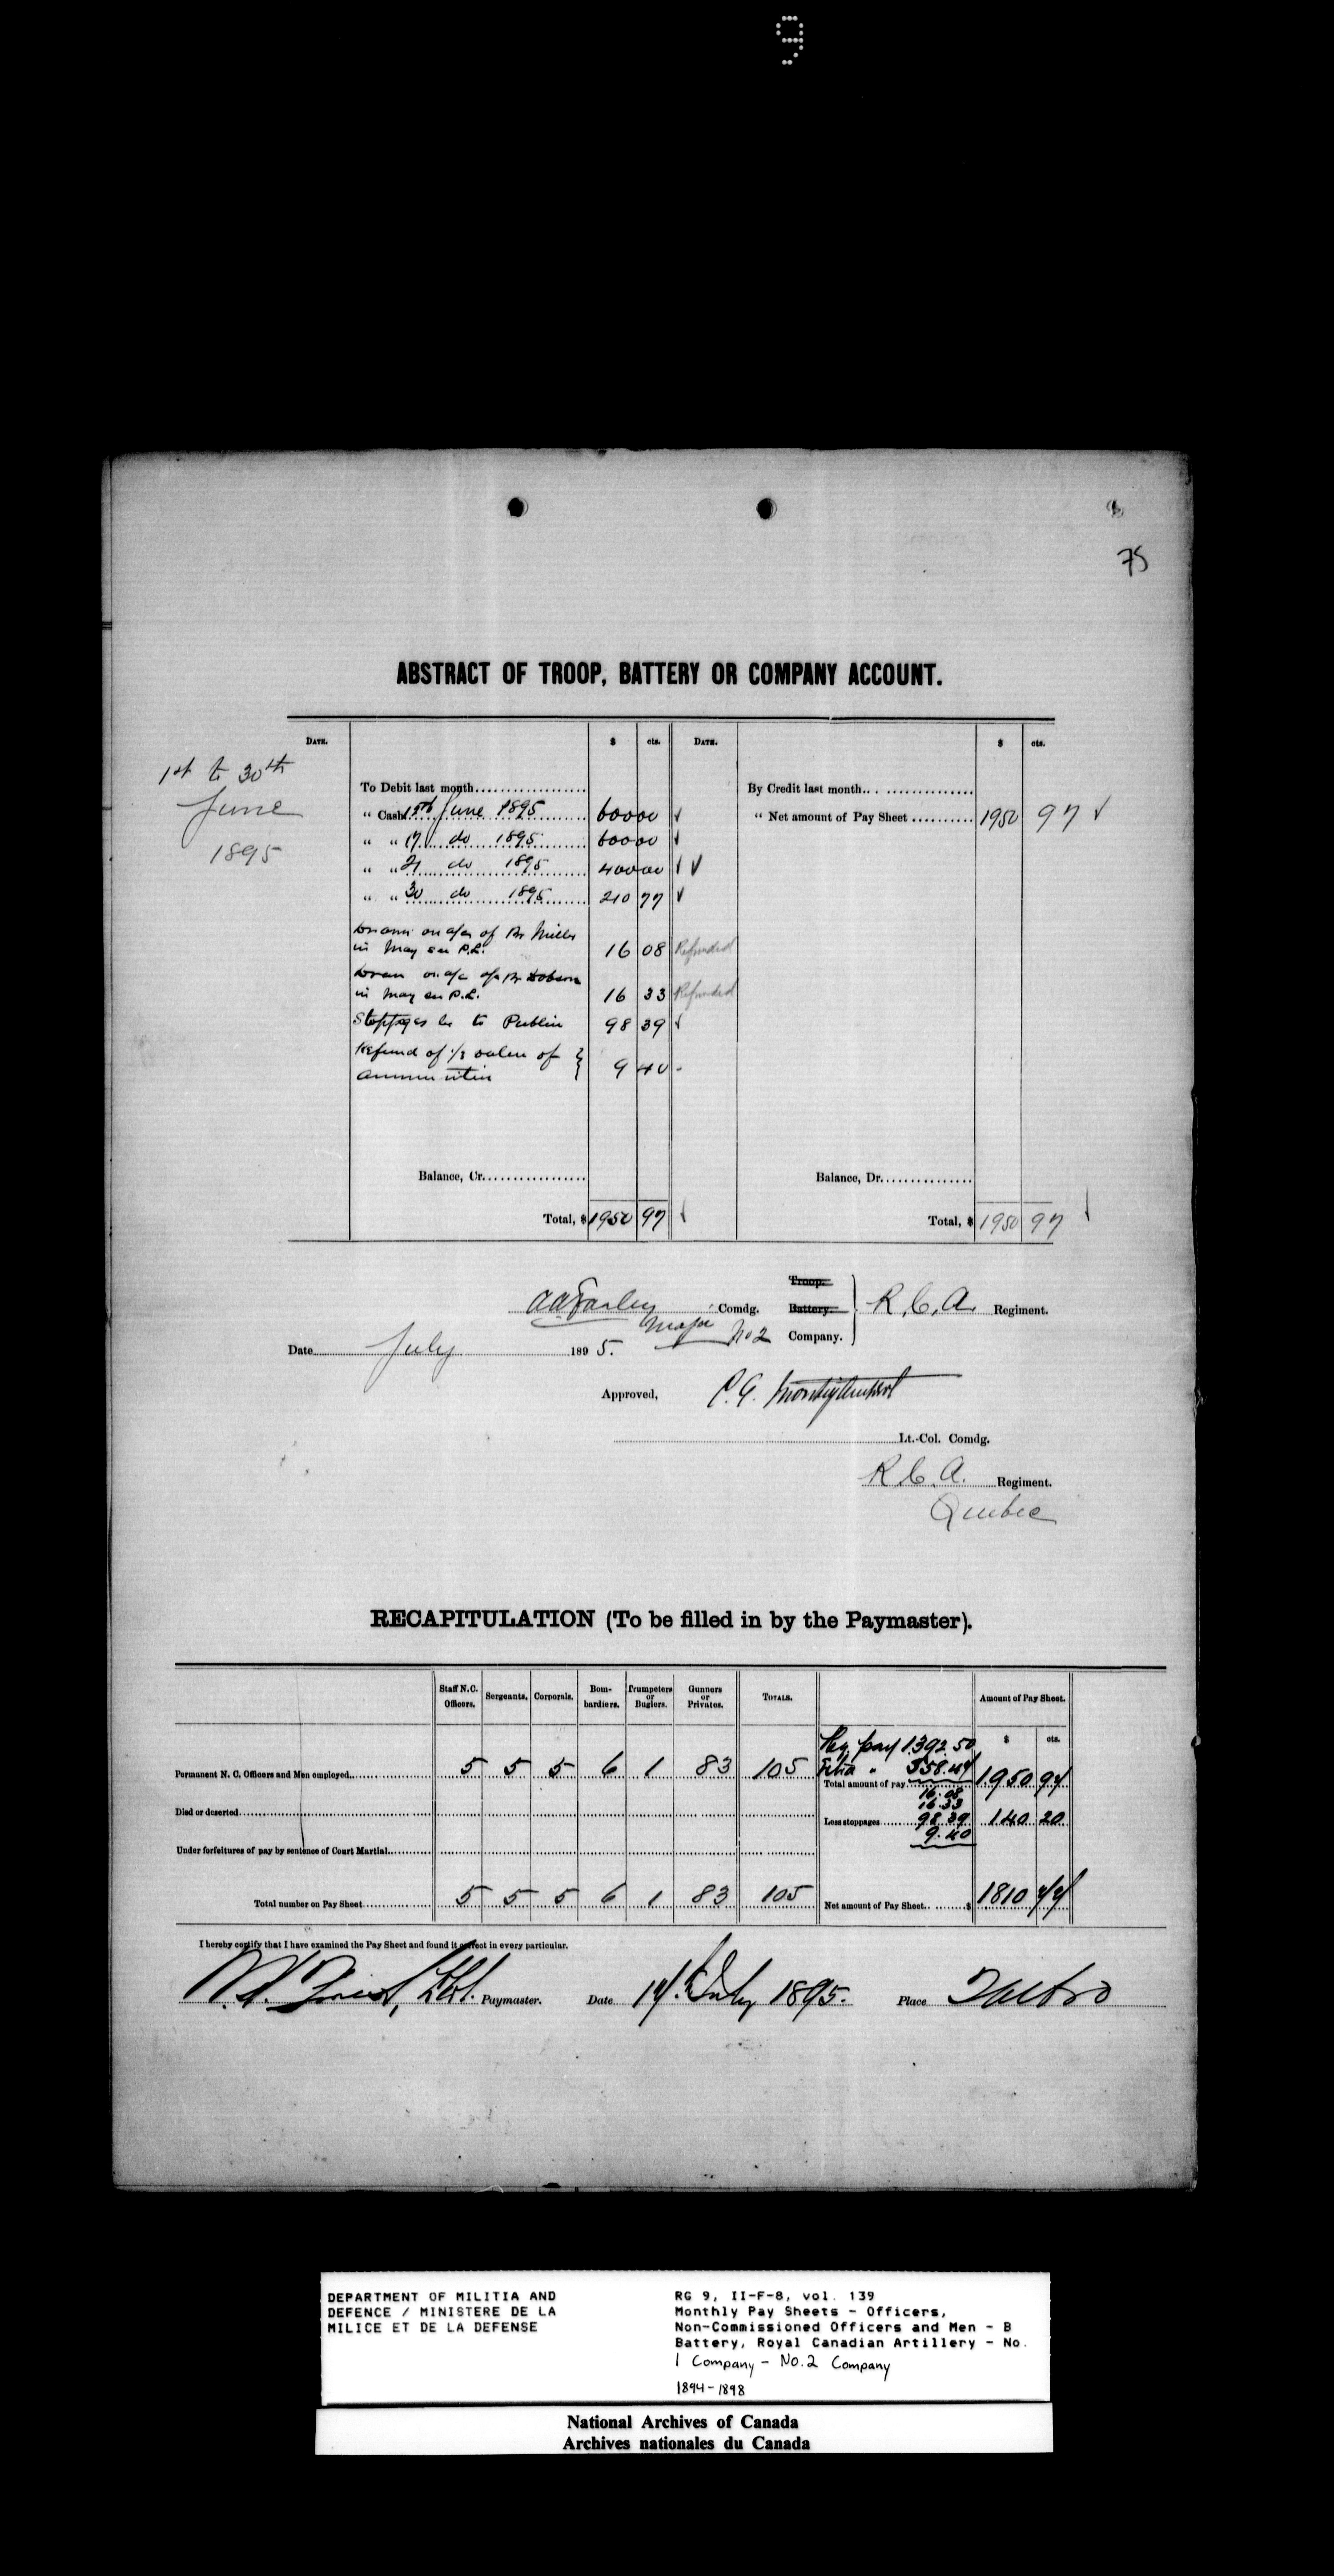 9
75
ABSTRACT OF TROOP, BATTERY OR COMPANY ACCOUNT.
DATE. $ cts. DATE. $ cts.
1st to 30th
June
1895
To Debit last month
By Credit last month
" Cash 15th June 1895 600 00
" Net amount of Pay Sheet 1950 97
" " 17 do 1895 600 00
" " 21 do 1895 400 00
" " 30 do 1895 210 77
Drawn on a/c of Br Miller
in May P.L. 16 08 Refunded
Drawn on a/c of Br Dobson
in May P.L. 16 33 Refunded
Stoppages to Public 98 39
Refund of 1/2 value of
ammunition 9 40
Balance, Cr.
Balance, Dr.
Total, $ 1950 97
Total, $ 1950 97
Troop.
AA Farley Comdg. Battery R.C.A. Regiment.
Major No 2 Company.
Date July 1895.
Approved, C.E. Montizambert
Lt.-Col. Comdg.
R.C.A. Regiment.
Quebec
RECAPITULATION (To be filled in by the Paymaster).
Staff N.C. Officers. Sergeants. Corporals. Bombardiers. Trumpeters or Buglers. Gunners or Privates. TOTALS. Amount of Pay Sheet.
$ cts.
Reg. pay 1392.50
Permanent N. C. Officers and Men employed 5 5 5 6 1 83 105 Extra " 558.47
Total amount of pay 1950 97
16.08
16.33
Died or deserted
Less stoppages 98.39 140 20
9.40
Under forfeitures of pay by sentence of Court Martial
Total number on Pay Sheet 5 5 5 6 1 83 105 Net amount of Pay Sheet $ 1810 77
I hereby certify that I have examined the Pay Sheet and found it correct in every particular.
Paymaster. Date July 1895. Place Quebec
DEPARTMENT OF MILITIA AND
DEFENCE / MINISTERE DE LA
MILICE ET DE LA DEFENSE
RG 9, II-F-8, vol. 139
Monthly Pay Sheets - Officers,
Non-Commissioned Officers and Men - B
Battery, Royal Canadian Artillery - No.
1 Company - No.2 Company
1894-1898
National Archives of Canada
Archives nationales du Canada